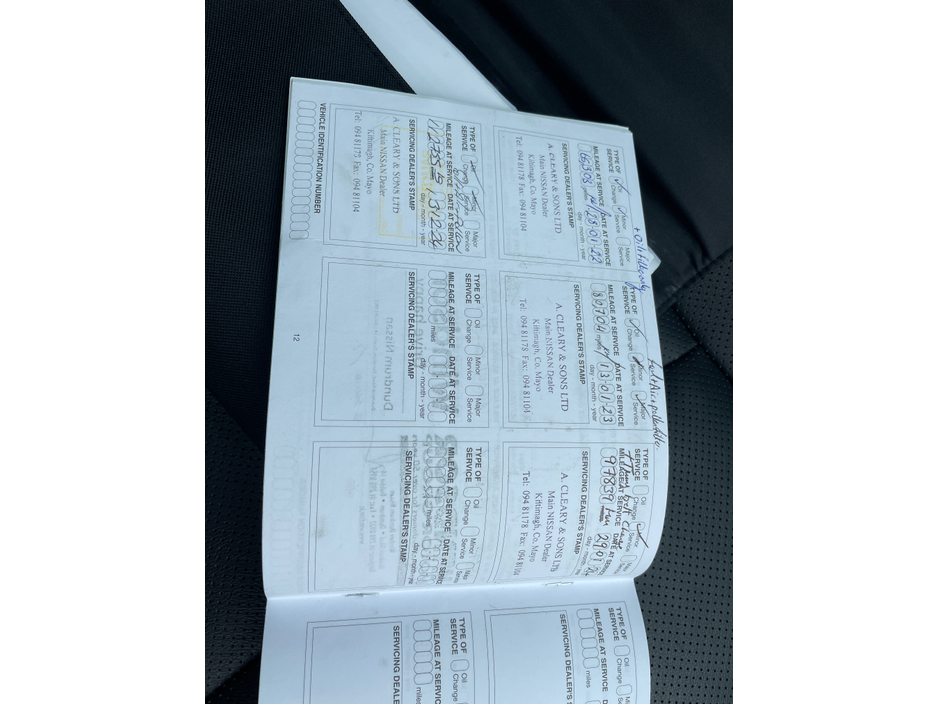 + oil + filter only
TYPE OF SERVICE Oil Change Minor Service Major Service
MILEAGE AT SERVICE DATE AT SERVICE
miles 28 01 22
day - month - year
SERVICING DEALER'S STAMP
A. CLEARY & SONS LTD
Main NISSAN Dealer
Kiltimagh, Co. Mayo
Tel: 094 81178 Fax: 094 81104
TYPE OF SERVICE Oil Change Minor Service Major Service
MILEAGE AT SERVICE DATE AT SERVICE
80704 miles 13 01 23
day - month - year
SERVICING DEALER'S STAMP
A. CLEARY & SONS LTD
Main NISSAN Dealer
Kiltimagh, Co. Mayo
Tel: 094 81178 Fax: 094 81104
TYPE OF SERVICE Oil Change Minor Service
MILEAGE AT SERVICE DATE AT SERVICE
97839 km 29 01
day - month
SERVICING DEALER'S STAMP
A. CLEARY & SONS LTD
Main NISSAN Dealer
Kiltimagh, Co. Mayo
Tel: 094 81178 Fax: 094 81104
TYPE OF SERVICE Oil
Change
MILEAGE AT SERVICE
miles
SERVICING DEALER'S S
TYPE OF SERVICE Change Service Major Service
MILEAGE AT SERVICE DATE AT SERVICE
13 12 24
day - month - year
SERVICING DEALER'S STAMP
A. CLEARY & SONS LTD
Main NISSAN Dealer
Kiltimagh, Co. Mayo
Tel: 094 81178 Fax: 094 81104
TYPE OF SERVICE Oil Change Minor Service Major Service
MILEAGE AT SERVICE DATE AT SERVICE
miles day - month - year
SERVICING DEALER'S STAMP
TYPE OF SERVICE Oil Change Minor Service
MILEAGE AT SERVICE DATE AT SERVIC
miles day - month - ye
SERVICING DEALER'S STAMP
TYPE OF SERVICE Oil
Change
MILEAGE AT SERVICE
miles
SERVICING DEALE
VEHICLE IDENTIFICATION NUMBER
12